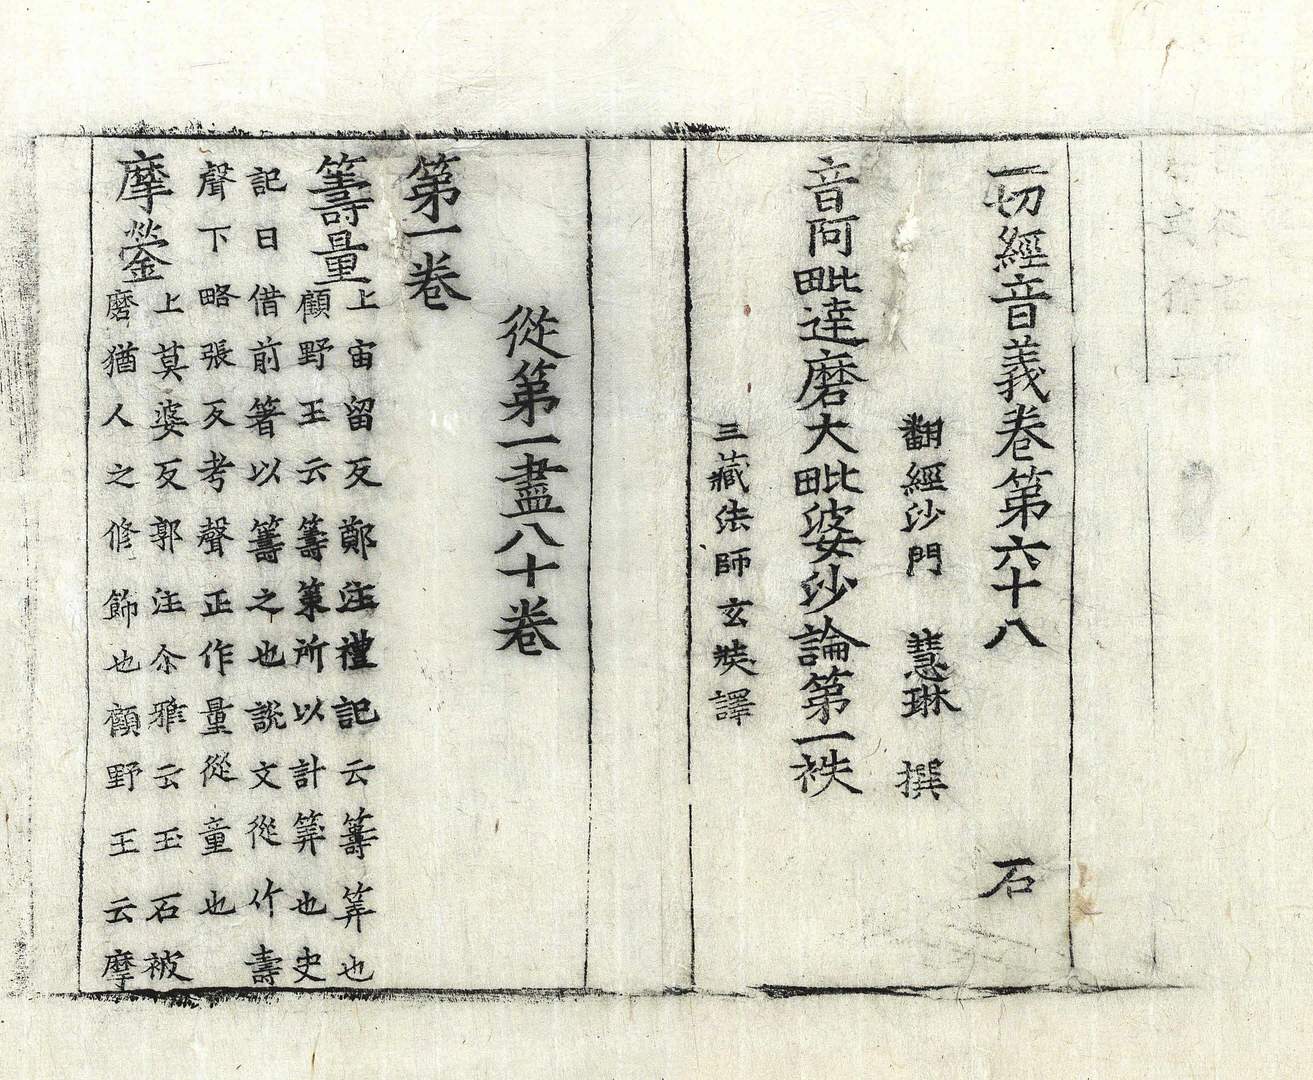 一切經音義卷第六十八 石
翻經沙門 慧琳 撰
音阿毗達磨大毗婆沙論第一袟
三藏法師玄奘譯
從第一盡八十卷
第一卷
籌量上宙留反鄭注禮記云籌筭也
顧野王云籌策所以計筭也史
記曰借前箸以籌之也說文從竹壽
聲下略張反考聲正作量從童也
摩鎣上莫婆反郭注尒雅云玉石被
磨猶人之修飾也顧野王云摩